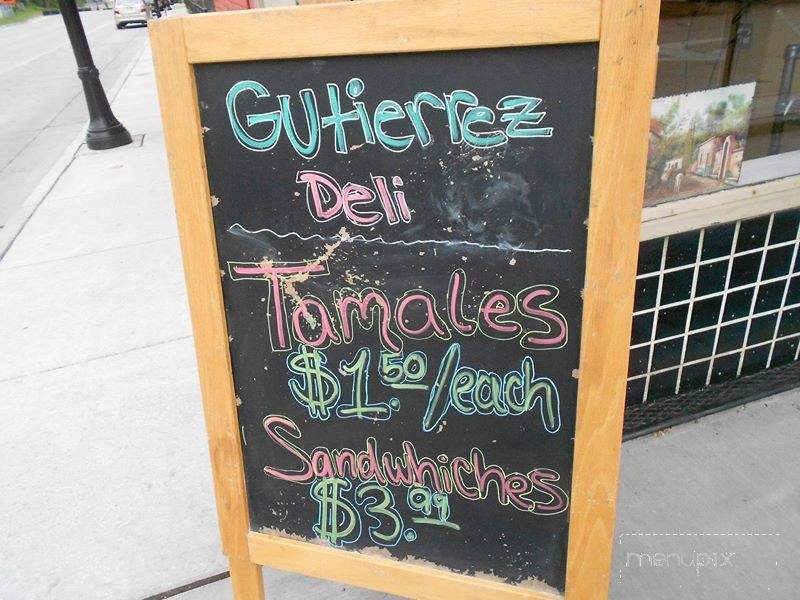 Gutierrez
Deli
Tamales
$1.50/each
Sandwhiches
$3.99
menupix